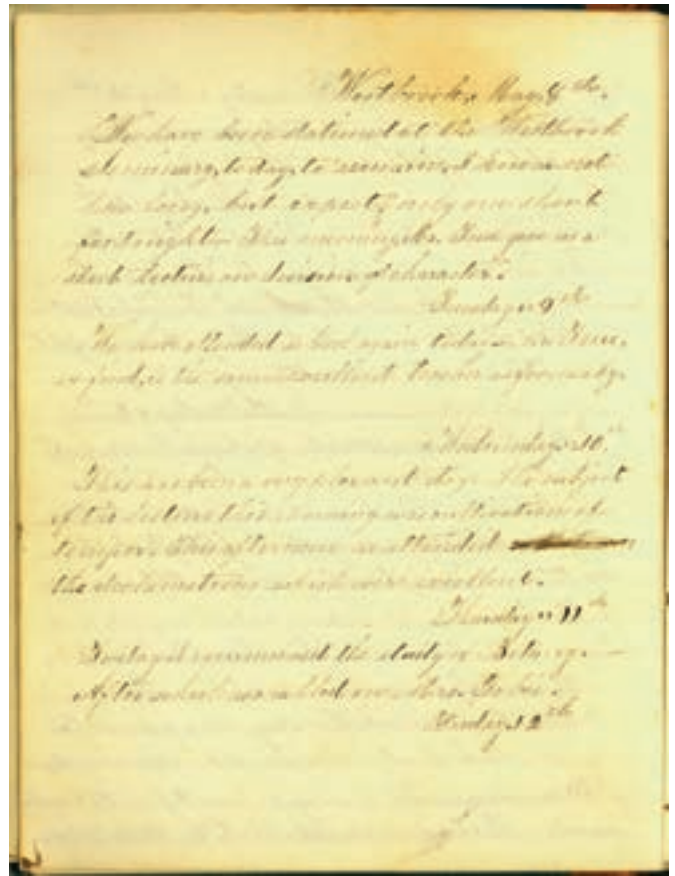 Westbrook, May 8th.
We have been stationed at the Westbrook
Seminary, today, to remain, I know not
how long, but expect only one short
fortnight. This morning Mr. gave us a
short lecture on decision of character.
Tuesday 9th
We have attended school again today.
is the same excellent as formerly.
Wednesday 10th
This has been a very pleasant day. The subject
of the lecture this morning was cultivation of
temper. This afternoon we attended
the declamations which were excellent.
Thursday 11th
Today I commenced the study of Botany.
After school we called on Mrs.
Friday 12th